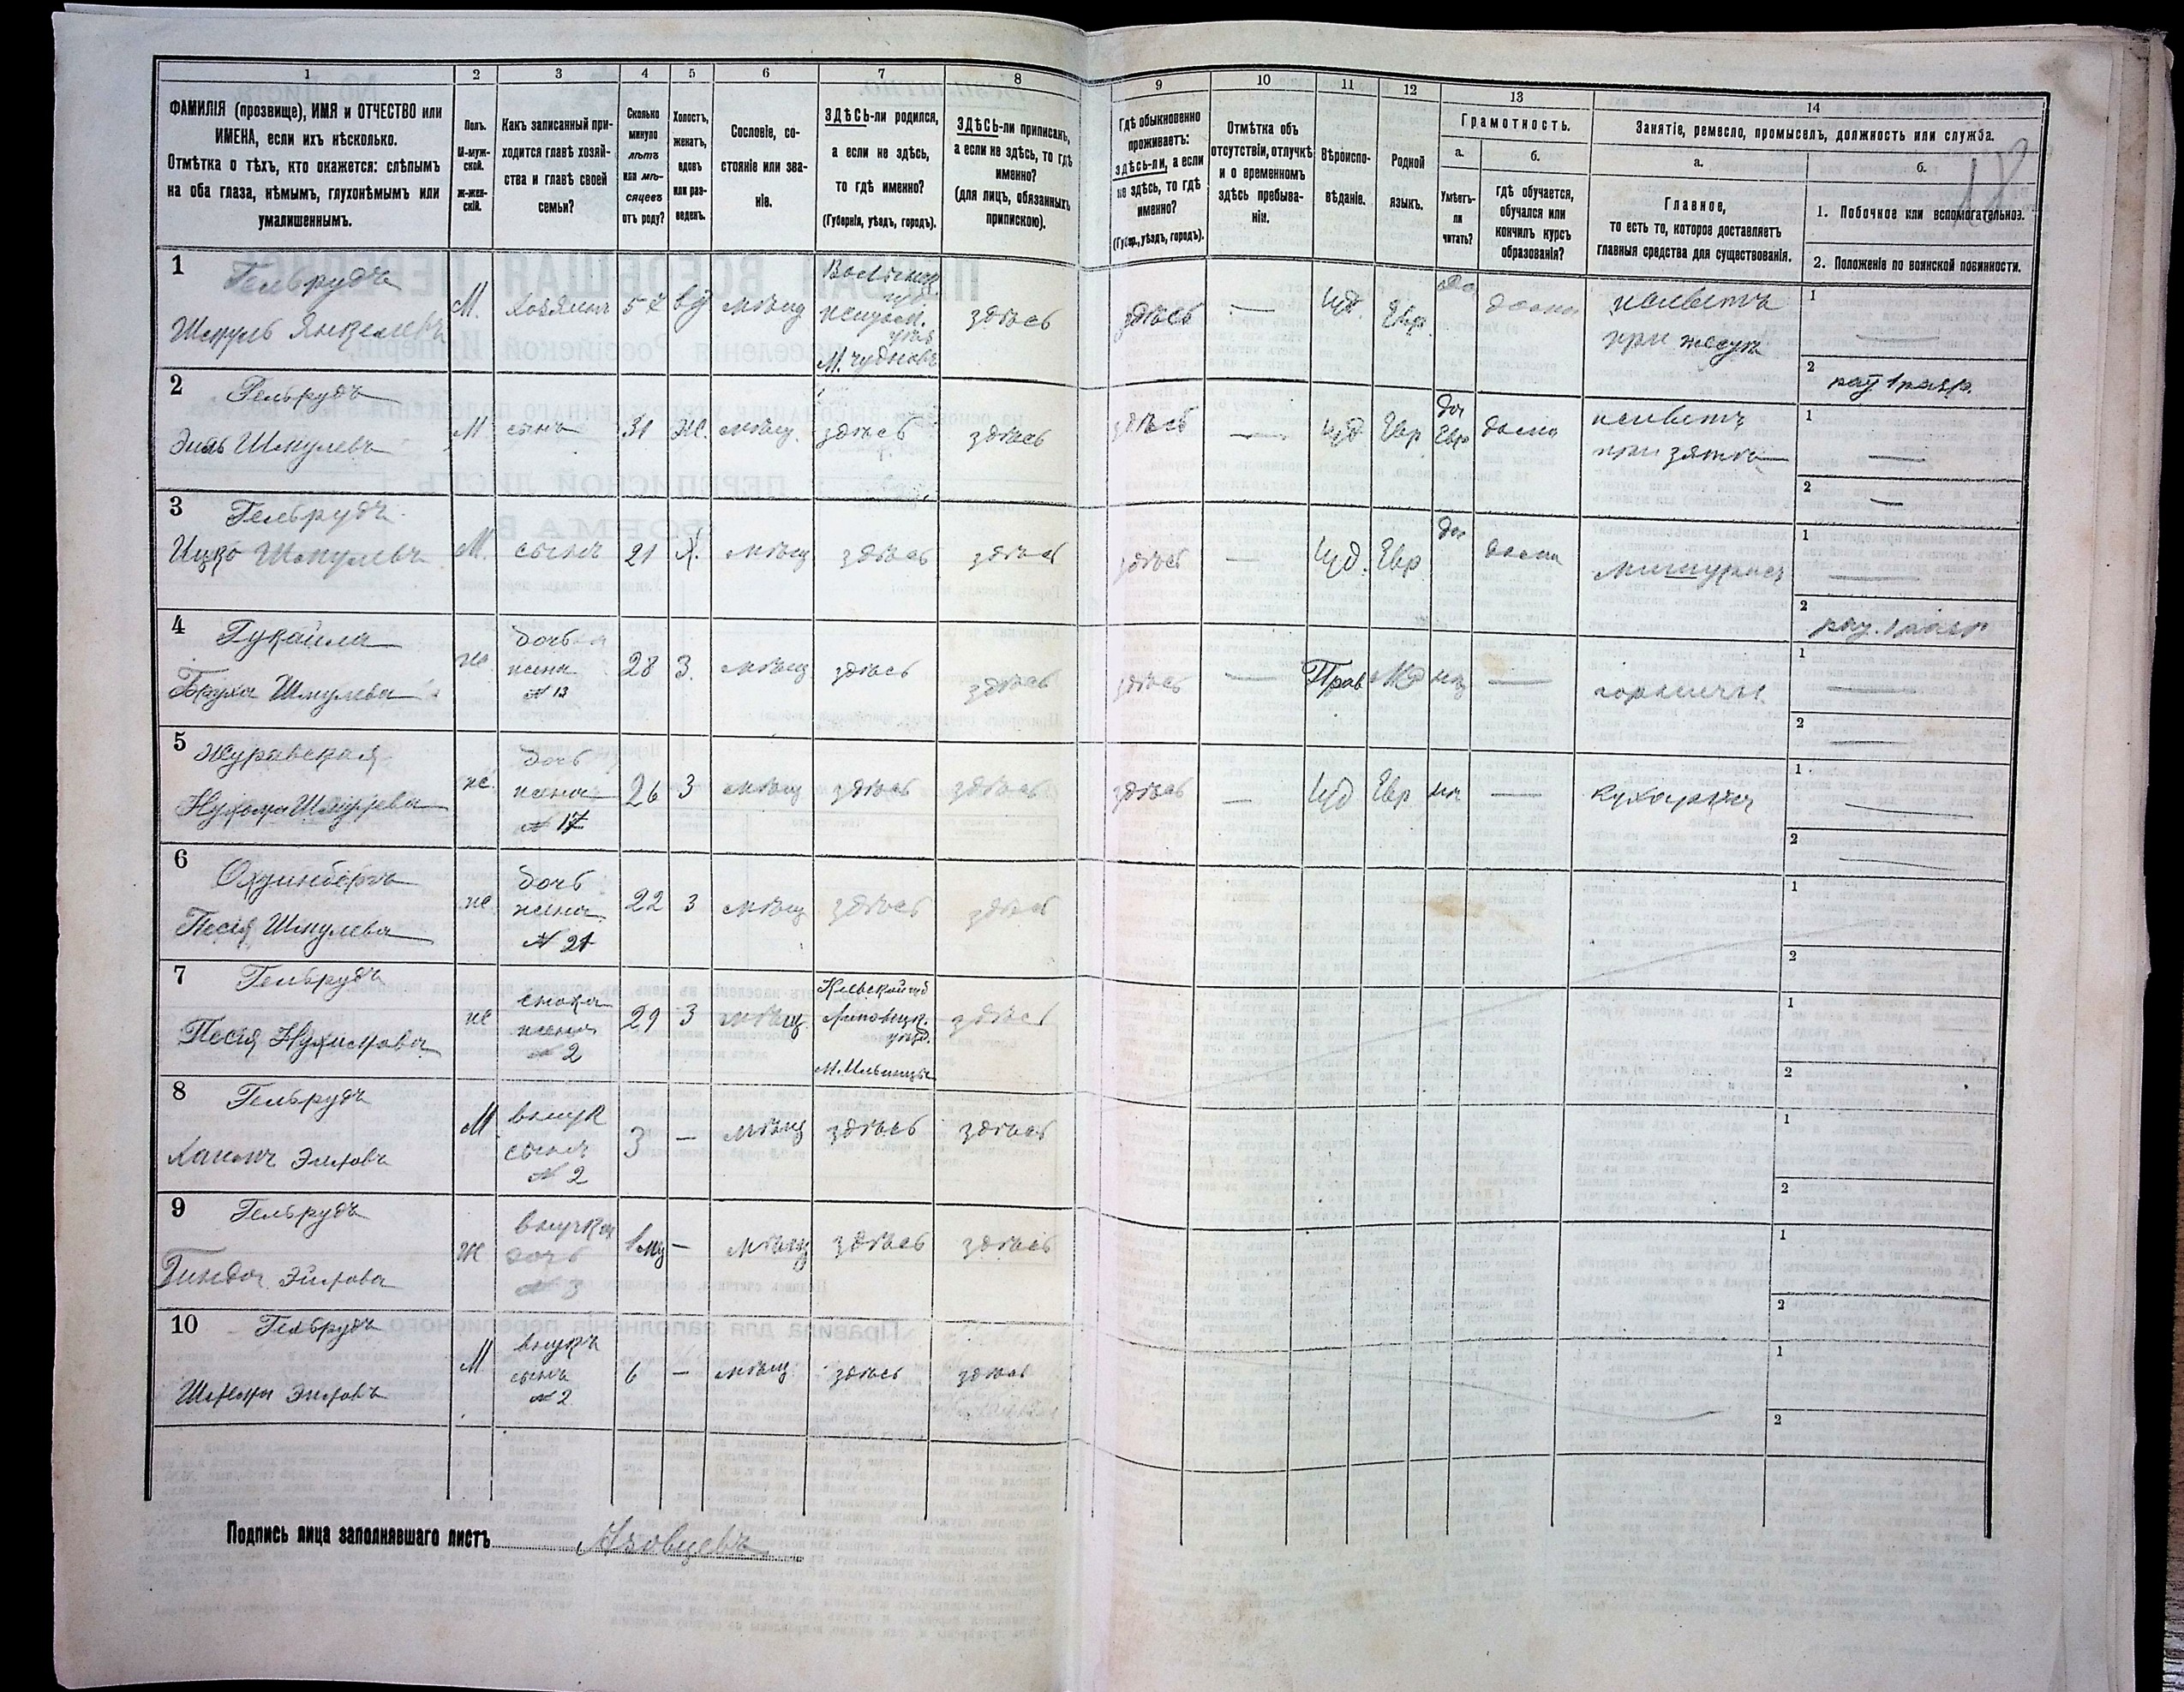 1 2 3 4 5 6 7 8 9 10 11 12 13 14
ФАМИЛІЯ (прозвище), ИМЯ и ОТЧЕСТВО или
ИМЕНА, если ихъ нѣсколько.
Отмѣтка о тѣхъ, кто окажется: слѣпымъ
на оба глаза, нѣмымъ, глухонѣмымъ или
умалишеннымъ.
Полъ.
М-муж-
ской.
Ж-жен-
скій.
Какъ записанный при-
ходится главѣ хозяй-
ства и главѣ своей
семьи?
Сколько
минуло
лѣтъ
или мѣ-
сяцевъ
отъ роду?
Холостъ,
женатъ,
вдовъ
или раз-
веденъ.
Сословіе, со-
стояніе или зва-
ніе.
ЗДѢСЬ-ли родился,
а если не здѣсь,
то гдѣ именно?
(Губернія, уѣздъ, городъ).
ЗДѢСЬ-ли приписанъ,
а если не здѣсь, то гдѣ
именно?
(для лицъ, обязанныхъ
припискою).
Гдѣ обыкновенно
проживаетъ:
здѣсь-ли, а если
не здѣсь, то гдѣ
именно?
(Губер., уѣздъ, городъ).
Отмѣтка объ
отсутствіи, отлучкѣ
и о временномъ
здѣсь пребыва-
ніи.
Вѣроиспо-
вѣданіе.
Родной
языкъ.
Грамотность.
а.
Умѣетъ-
ли
читать?
б.
гдѣ обучается,
обучался или
кончилъ курсъ
образованія?
Занятіе, ремесло, промыселъ, должность или служба.
а.
Главное,
то есть то, которое доставляетъ
главныя средства для существованія.
б.
1. Побочное или вспомогательное.
2. Положеніе по воинской повинности.
18
1 Гельрудъ
Шмуль Янкелевъ М. хозяинъ 54 вд мѣщ
М. Чудновъ
здѣсь здѣсь — Іуд. Евр. да дома
1 —
2 рат 1 разр.
2 Гельрудъ
Эиль Шмулевъ М сынъ 31 Ж. мѣщ. здѣсь здѣсь здѣсь — Іуд Евр
Евр дома
при зятѣ
1 —
2 —
3 Гельрудъ
Шмулевъ М. сынъ 21 Х. мѣщ здѣсь здѣсь здѣсь — Іуд. Евр да дома
1 —
2 рат. 1 разр
4
Бруха Шмулева ж. дочь
жена
№ 13
28 З. мѣщ здѣсь здѣсь здѣсь — Прав —
1 —
2 —
5 Журавская
Шмулева ж. дочь
жена
№ 17
26 З мѣщ здѣсь здѣсь здѣсь — Іуд Евр — кухарка
1 —
2 —
6
Песія Шмулева ж. дочь
жена
№ 21
22 З мѣщ здѣсь здѣсь
1
2
7 Гельрудъ
Песія ж сноха
жена
№ 2
29 З мѣщ. Кіевской губ
Липовец.
уѣзд.
М. Ильинцы
здѣсь
1
2
8 Гельрудъ
М внук
сынъ
№ 2
3 — мѣщ здѣсь здѣсь
1
2
9 Гельрудъ
Ж внучка
дочь
№ 3
— мѣщ здѣсь здѣсь
1
2
10 Гельрудъ
М внукъ
сынъ
№ 2
6 — мѣщ здѣсь здѣсь
1
2
Подпись лица заполнявшаго листъ